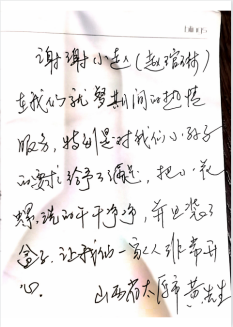 谢谢小赵(赵琯琳)
在我们就餐期间的热情
服务,特别是对我们小孩子
的要求给予了满足,把小花
螺洗的干干净净,并且装了
盒子,让我们一家人非常开
心。
山西省太原市 黄先生